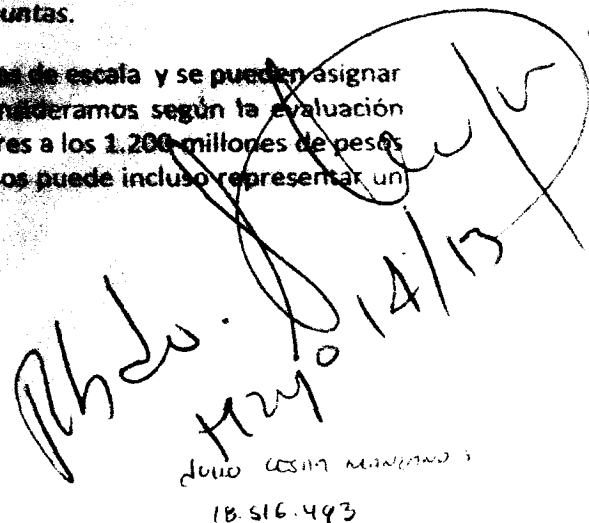 untas.
de escala y se pueden asignar
nsideramos según la evaluación
res a los 1.200 millones de pesos
os puede incluso representar un
Rbdo.
Mayo 14/13
JULIO CESAR MANZANO
18.516.493